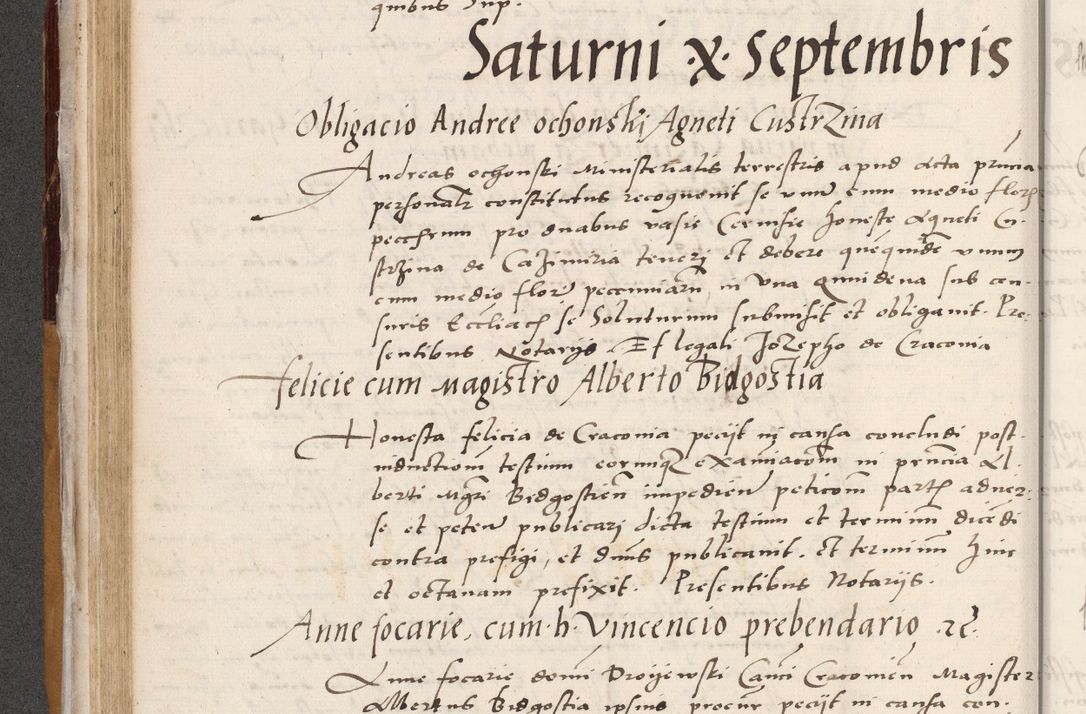 quibus sup.
Saturni ·x· Septembris
Obligacio Andree ochonskj Agneti CustrZina
Andreas ochonski Ministerialis terrestris apud acta pr̃ncia
personalr̃ constitutus recognouit se vnũ cum medio flor
pecc̃rum pro duabus vasis Ceruisie honeste Agneti Cu-
strzina de Cazimiria teneri et debere quequide vnum
cum medio flor pecuniarũ in vna quindena sub cen-
suris Eccliach se Soluturum submisit et obligauit. Pre-
sentibus Notarijs Et legali JoZepho de Cracouia
felicie cum magistro Alberto Bidgostia
Honesta felicia de Cracouia pecijt in causa concludi post-
inductionm testium eorumq exâiacom in pñcia Al-
berti Mgri Bidgostien impedien peticom part aduer-
se et peteñ publicari dicta testium et terminũ dicedi
contra prefigi, et dnus publicauit. Et terminũ hinc
ad octauam prefixit. Presentibus Notarijs.
Anne focarie, cum h. Vincencio prebendario .rc.
Anne focarie domini Canci Cracouien Magister
Albertus Bidgostia ipsius procur pecijt in causa con-